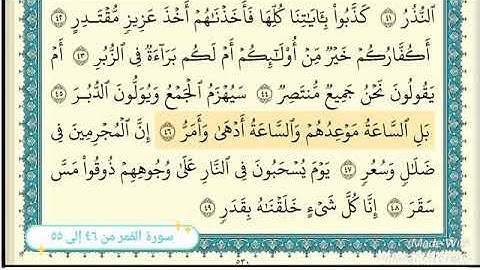 ٱلنُّذُرُ ٤١ كَذَّبُوا۟ بِـَٔايَـٰتِنَا كُلِّهَا فَأَخَذْنَـٰهُمْ أَخْذَ عَزِيزٍ مُّقْتَدِرٍ ٤٢
أَكُفَّارُكُمْ خَيْرٌ مِّنْ أُو۟لَـٰٓئِكُمْ أَمْ لَكُم بَرَآءَةٌ فِى ٱلزُّبُرِ ٤٣ أَمْ
يَقُولُونَ نَحْنُ جَمِيعٌ مُّنتَصِرٌ ٤٤ سَيُهْزَمُ ٱلْجَمْعُ وَيُوَلُّونَ ٱلدُّبُرَ ٤٥
بَلِ ٱلسَّاعَةُ مَوْعِدُهُمْ وَٱلسَّاعَةُ أَدْهَىٰ وَأَمَرُّ ٤٦ إِنَّ ٱلْمُجْرِمِينَ فِى
ضَلَـٰلٍ وَسُعُرٍ ٤٧ يَوْمَ يُسْحَبُونَ فِى ٱلنَّارِ عَلَىٰ وُجُوهِهِمْ ذُوقُوا۟ مَسَّ
سَقَرَ ٤٨ إِنَّا كُلَّ شَىْءٍ خَلَقْنَـٰهُ بِقَدَرٍ ٤٩
سورة القمر من ٤٦ إلى ٥٥
Made With
٥٣٠